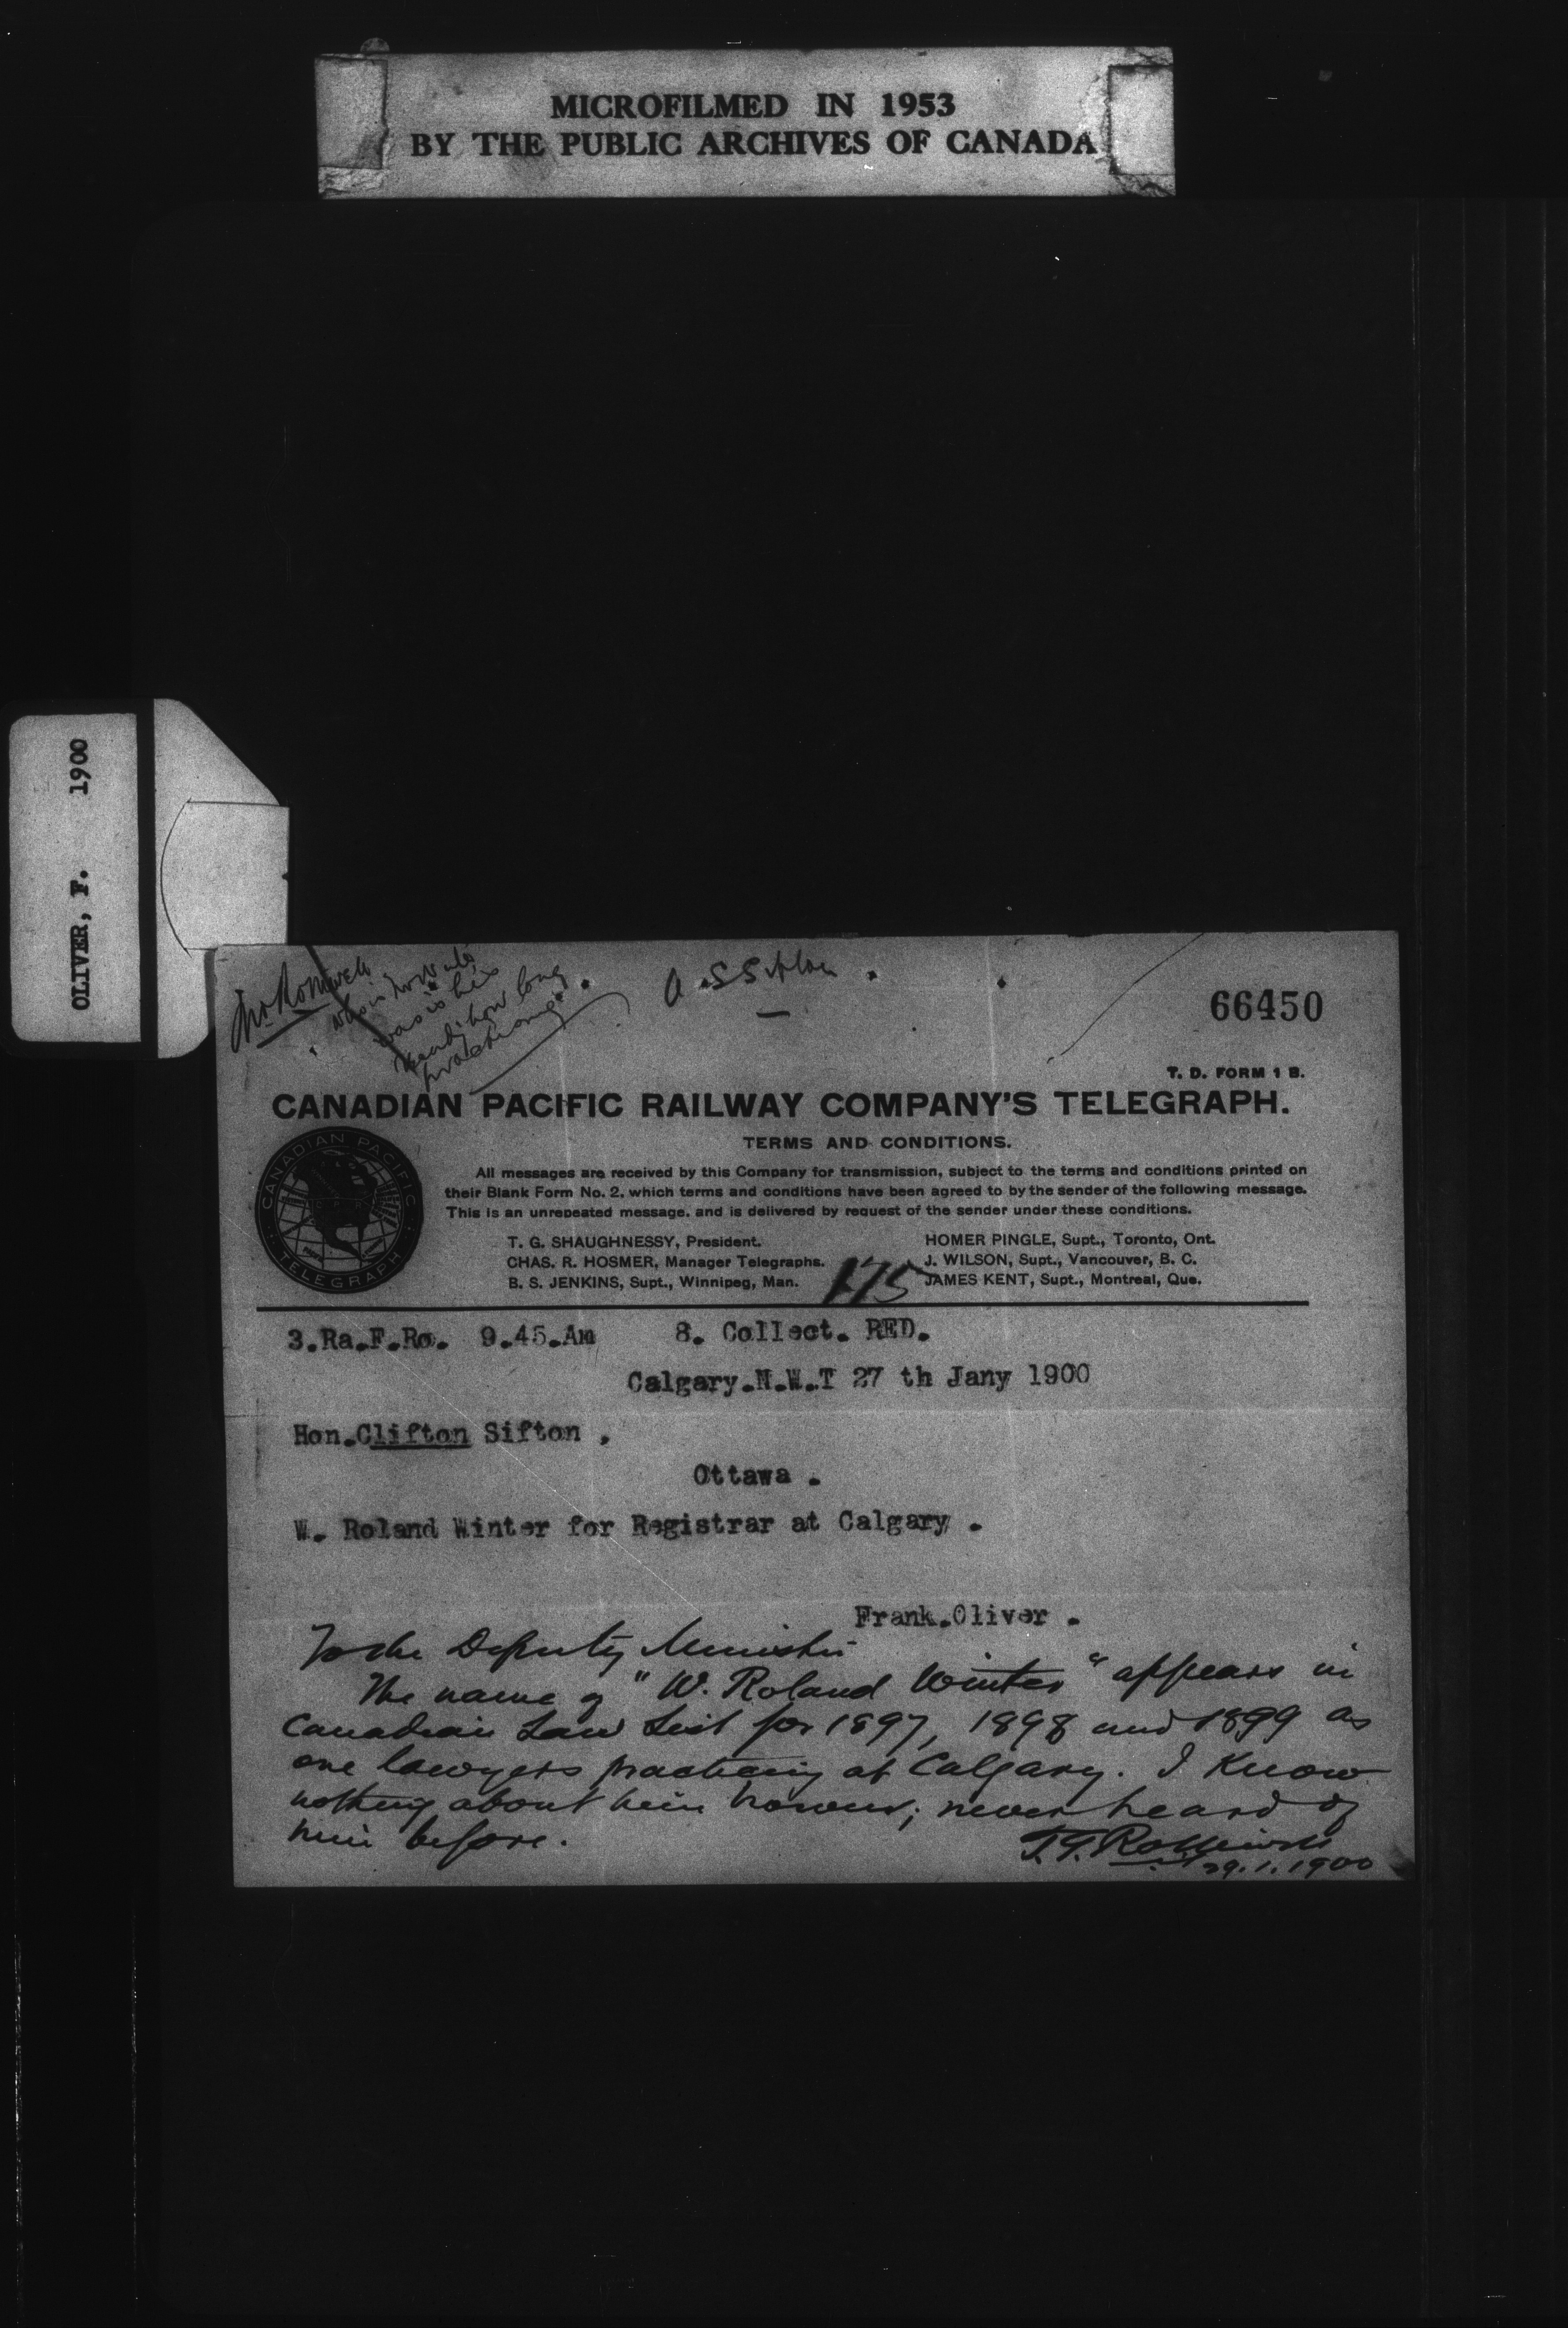 MICROFILMED IN 1953
BY THE PUBLIC ARCHIVES OF CANADA
OLIVER, F. 1900
66450
T. D. FORM 1 B.
CANADIAN PACIFIC RAILWAY COMPANY'S TELEGRAPH.
TERMS AND CONDITIONS.
CANADIAN PACIFIC
TELEGRAPH
All messages are received by this Company for transmission, subject to the terms and conditions printed on
their Blank Form No. 2, which terms and conditions have been agreed to by the sender of the following message.
This is an unrepeated message, and is delivered by request of the sender under these conditions.
T. G. SHAUGHNESSY, President.
CHAS. R. HOSMER, Manager Telegraphs.
B. S. JENKINS, Supt., Winnipeg, Man.
HOMER PINGLE, Supt., Toronto, Ont.
J. WILSON, Supt., Vancouver, B. C.
JAMES KENT, Supt., Montreal, Que.
175
3.Ra.F.Ro. 9.45.Am 8. Collect. RED.
Calgary.N.W.T 27 th Jany 1900
Hon.Clifton Sifton ,
Ottawa .
W. Roland Winter for Registrar at Calgary .
Frank.Oliver .
To the Deputy Minister
The name of "W. Roland Winter" appears in
Canadian Law List for 1897, 1898 and 1899 as
one lawyers practicing at Calgary. I know
nothing about him however; never heard of
him before.
29.1.1900